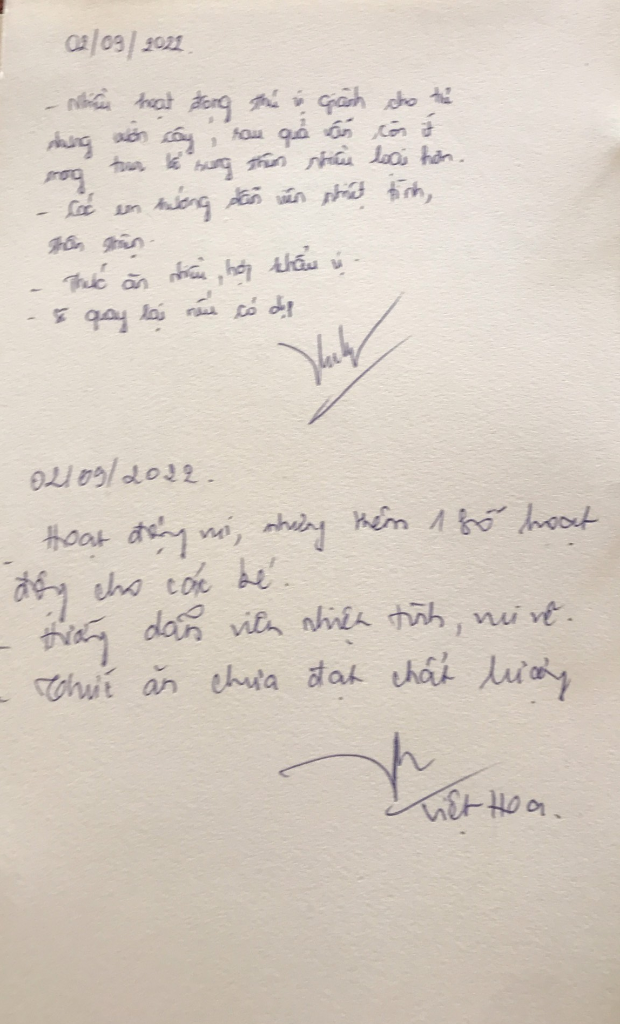 02/09/2022.
- Nhiều hoạt động thú vị giành cho trẻ
nhưng vườn cây, rau quả vẫn còn ít
mong tour bổ sung thêm nhiều loại hơn.
- Các em hướng dẫn viên nhiệt tình,
thân thiện.
- Thức ăn nhiều, hợp khẩu vị.
- sẽ quay lại nếu có dịp
02/09/2022.
Hoạt động vui, nhưng thêm 1 số hoạt
động cho các bé.
- Hướng dẫn viên nhiệt tình, vui vẻ.
- Thức ăn chưa đạt chất lượng
Việt Hoa.